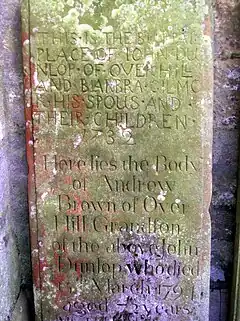 THIS IS THE
PLACE OF IOHN DU
NLOP OF OVER HIL
AND BARBRA GILMO
R HIS SPOUS AND
THEIR CHILDREN
1732
Here lies the Body
of Andrew
Brown of Over
Hill Grandson
of the above John
Dunlop who died
March 1794
aged 75 years